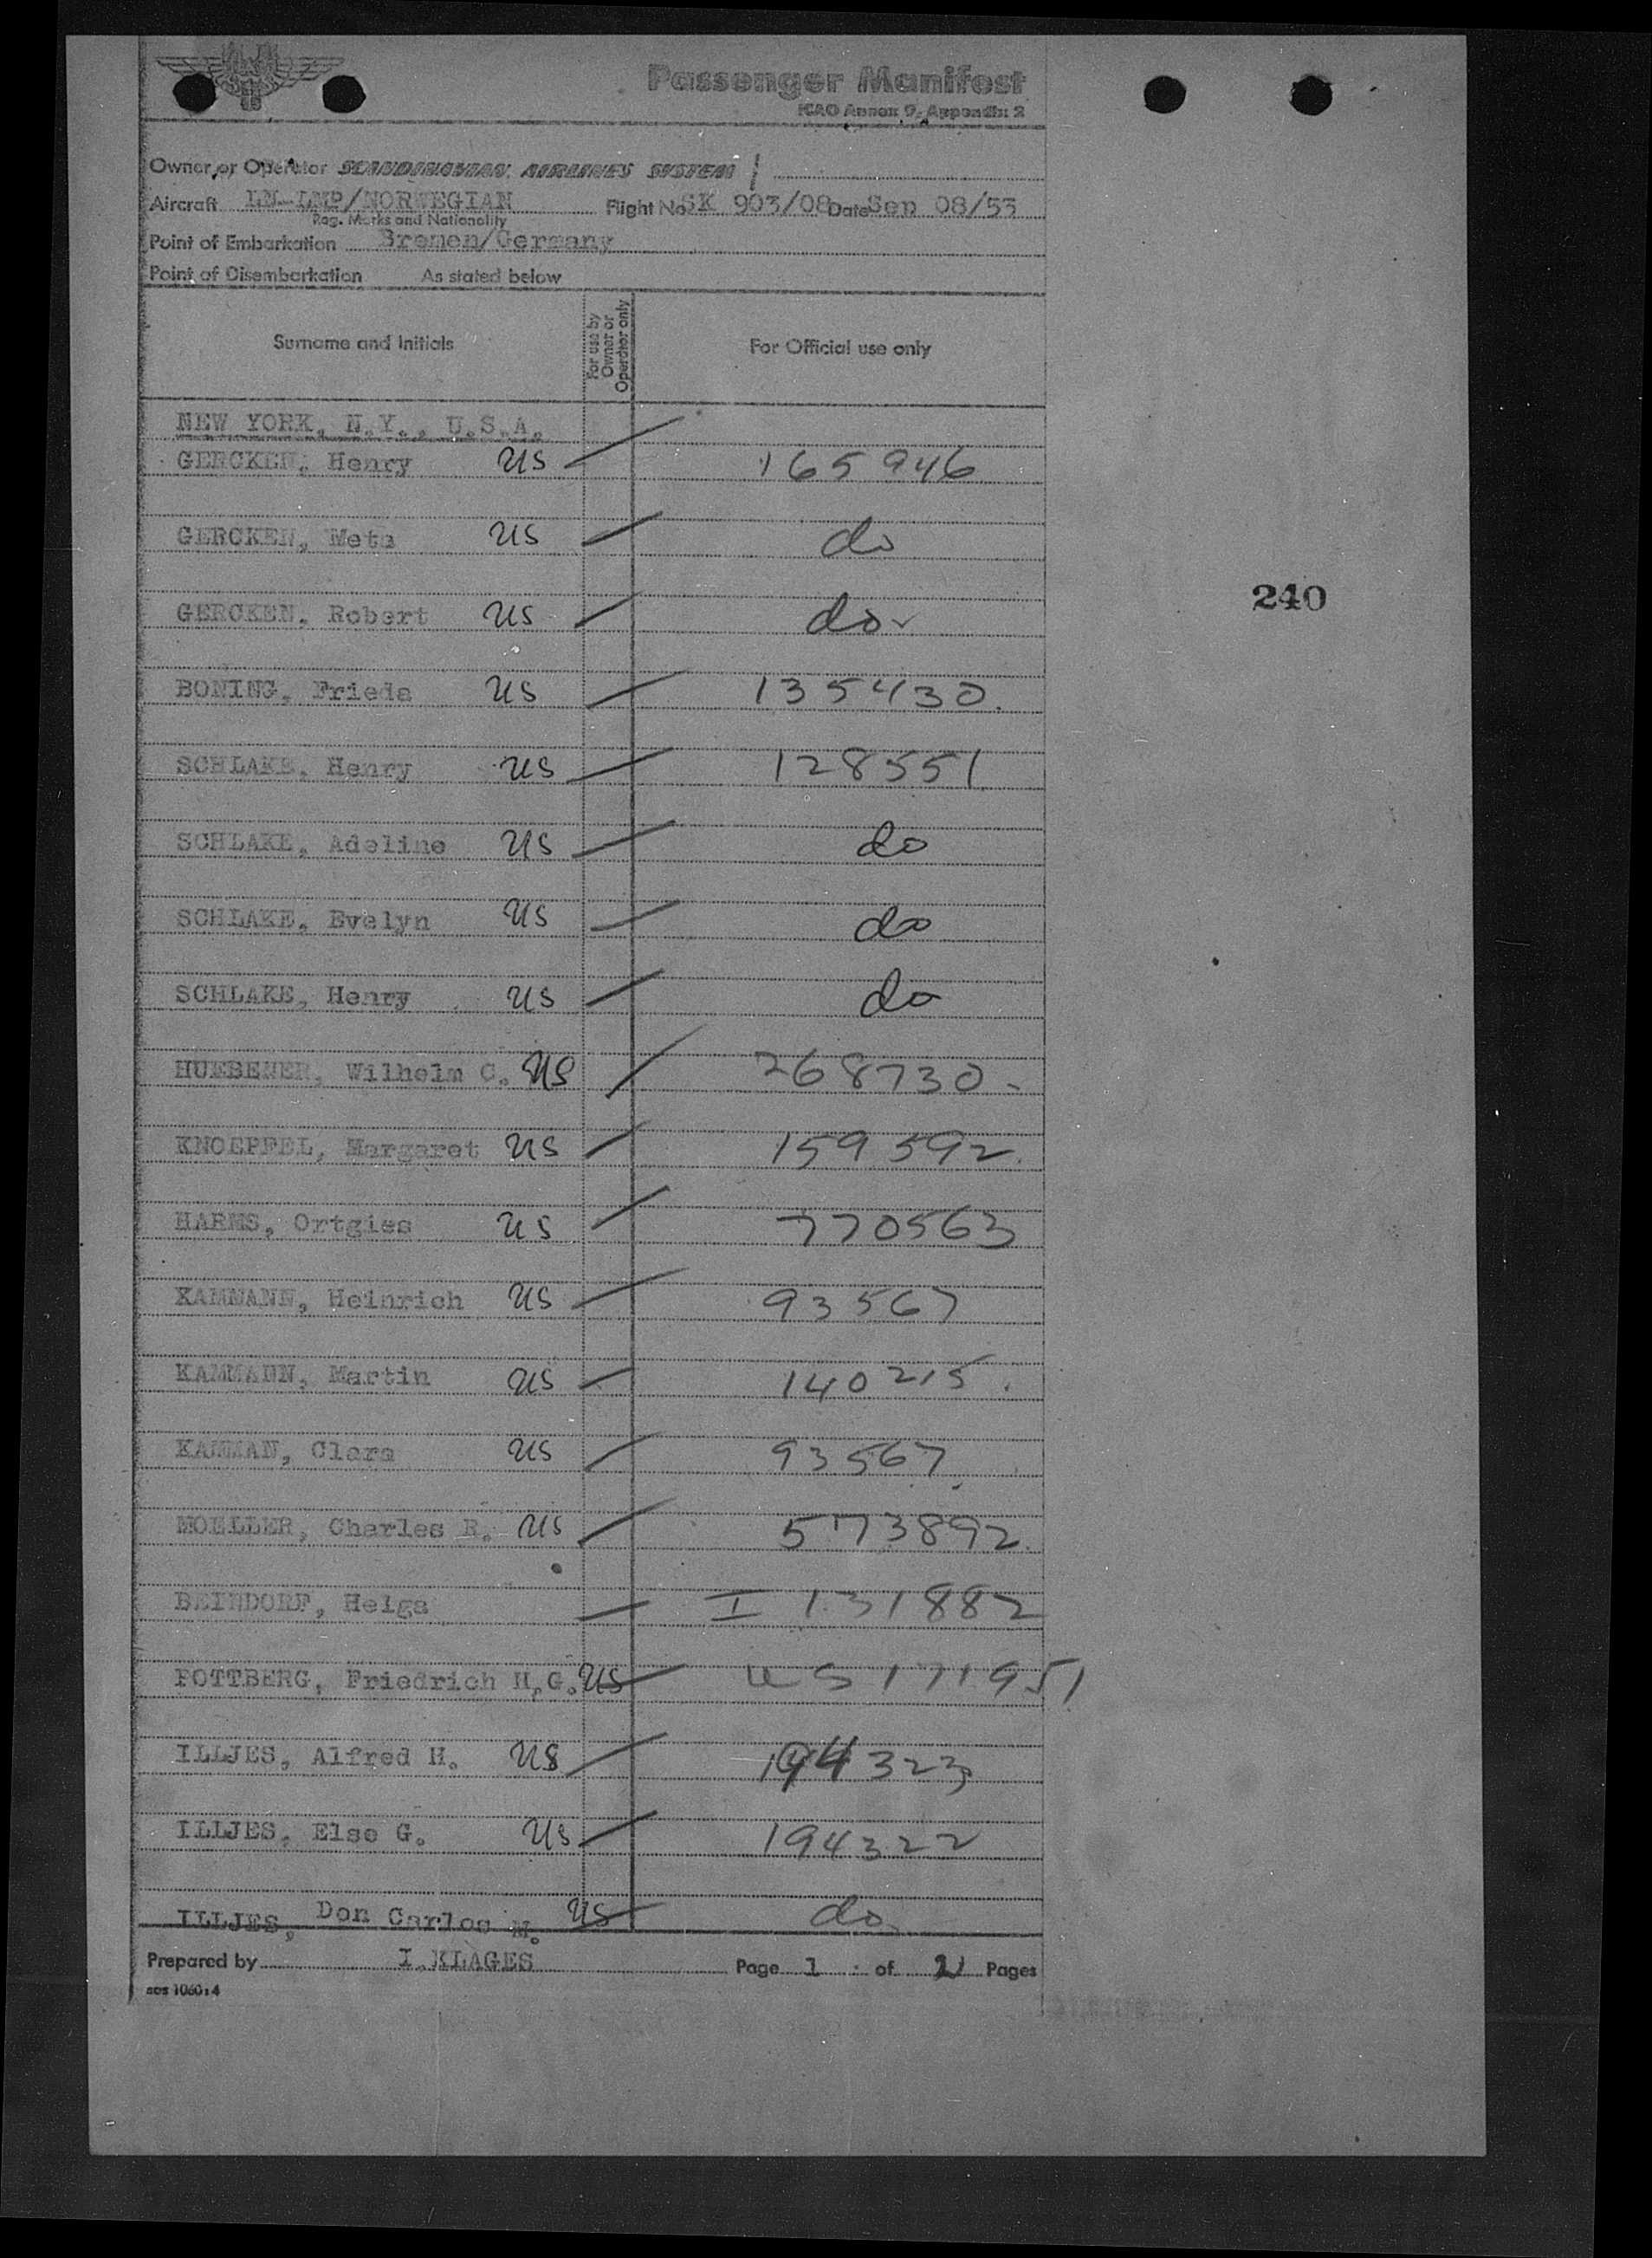 SAS
Passenger Manifest
ICAO Annex 9, Appendix 2
Owner or Operator SCANDINAVIAN AIRLINES SYSTEM
Aircraft LN-LMP/NORWEGIAN Flight No SK 903/08 Date Sep 08/53
Reg. Marks and Nationality
Point of Embarkation Bremen/Germany
Point of Disembarkation As stated below
Surname and Initials For use by Owner or Operator only For Official use only
NEW YORK, N.Y., U.S.A.
GERCKEN, Henry US 165946
GERCKEN, Meta US do
240
GERCKEN, Robert US do
BONING, Frieda US 135430.
SCHLAKE, Henry US 128551
SCHLAKE, Adeline US do
SCHLAKE, Evelyn US do
SCHLAKE, Henry US do
HUEBENER, Wilhelm C. US 268730
KNOEPFEL, Margaret US 159592.
HARMS, Ortgies US 770563
KAMMANN, Heinrich US 93567
KAMMANN, Martin US 140215.
KAMMAN, Clara US 93567.
MOELLER, Charles R. US 573892.
BEINDORF, Helga I 131882
POTTBERG, Friedrich H.G. US US 171951
ILLJES, Alfred H. US 194323
ILLJES, Else G. US 194322
ILLJES, Don Carlos M. US do
Prepared by I.KLAGES Page 1 of 2 Pages
sas 1060:4